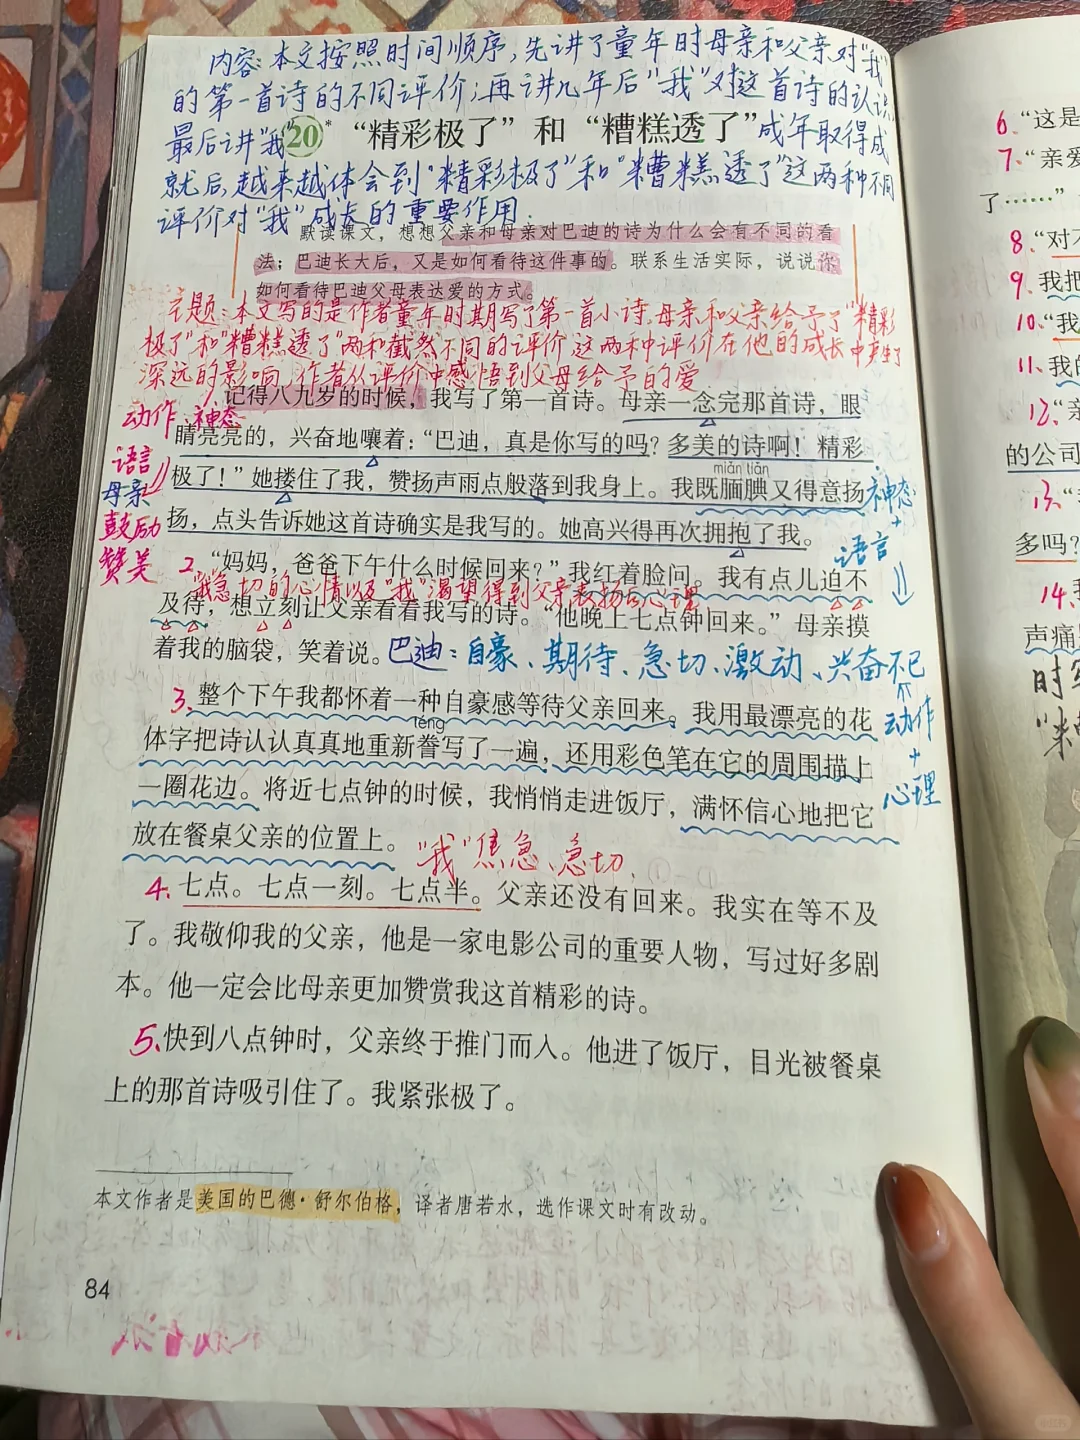 内容:本文按照时间顺序,先讲了童年时母亲和父亲对"我"
的第一首诗的不同评价;再讲几年后"我"对这首诗的认识
最后讲"我" 成年取得成
20* “精彩极了”和“糟糕透了”
就后,越来越体会到"精彩极了"和"糟糕透了"这两种不同
评价对"我"成长的重要作用.
默读课文，想想父亲和母亲对巴迪的诗为什么会有不同的看
法；巴迪长大后，又是如何看待这件事的。联系生活实际，说说你
如何看待巴迪父母表达爱的方式。
主题:本文写的是作者童年时期写了第一首小诗,母亲和父亲给予了"精彩
极了"和"糟糕透了"两种截然不同的评价,这两种评价在他的成长中产生了
深远的影响,作者从评价中感悟到父母给予的爱
1、记得八九岁的时候，我写了第一首诗。母亲一念完那首诗，眼
动作、神态
睛亮亮的，兴奋地嚷着：“巴迪，真是你写的吗？多美的诗啊！精彩
语言
miǎn tiǎn
极了！”她搂住了我，赞扬声雨点般落到我身上。我既腼腆又得意扬
神态
母亲
扬，点头告诉她这首诗确实是我写的。她高兴得再次拥抱了我。
+
鼓励
语言
赞美
2、“妈妈，爸爸下午什么时候回来？”我红着脸问。我有点儿迫不
"我"急切的心情以及"我"渴望得到父亲表扬的心理
及待，想立刻让父亲看看我写的诗。“他晚上七点钟回来。”母亲摸
着我的脑袋，笑着说。
巴迪:自豪、期待、急切、激动、兴奋不已
3、整个下午我都怀着一种自豪感等待父亲回来。我用最漂亮的花
动作
téng
体字把诗认认真真地重新誊写了一遍，还用彩色笔在它的周围描上
+
一圈花边。将近七点钟的时候，我悄悄走进饭厅，满怀信心地把它
心理
放在餐桌父亲的位置上。
"我"焦急、急切.
4、七点。七点一刻。七点半。父亲还没有回来。我实在等不及
了。我敬仰我的父亲，他是一家电影公司的重要人物，写过好多剧
本。他一定会比母亲更加赞赏我这首精彩的诗。
5、快到八点钟时，父亲终于推门而入。他进了饭厅，目光被餐桌
上的那首诗吸引住了。我紧张极了。
本文作者是美国的巴德·舒尔伯格，译者唐若水，选作课文时有改动。
84
6、“这是
7、“亲爱
了……”
8、“对不
9、我把
10、“我
11、我的
12、“亲
的公司
13、
多吗？
14、我
声痛